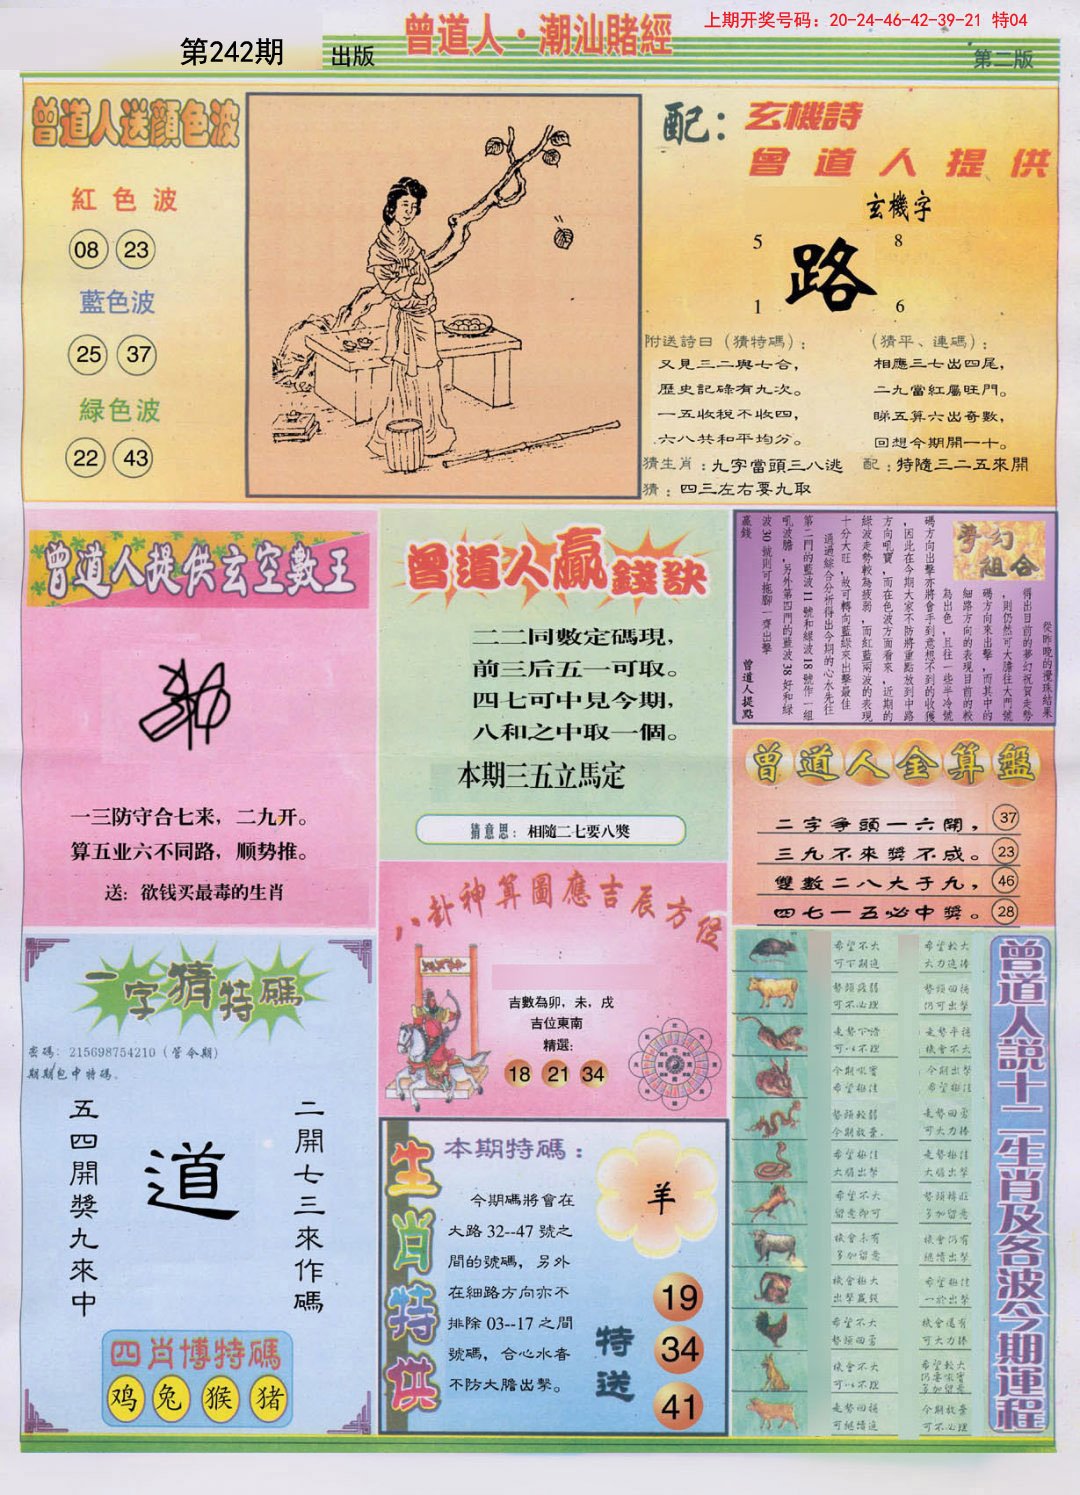 上期开奖号码：20-24-46-42-39-21 特04
第242期
出版
曾道人·潮汕賭經
第二版
曾道人送顏色波
紅色波
08 23
藍色波
25 37
緑色波
22 43
配：玄機詩
曾道人提供
玄機字
5 8
路
1 6
附送詩曰（猜特碼）；
又見三二與七合，
歷史記碌有九次。
一五收稅不收四，
六八共和平均分。
猜生肖：九字當頭三八逃
猜：四三左右要九取
（猜平、連碼）；
相應三七出四尾，
二九當紅屬旺門。
睇五算六出奇數，
回想今期開一十。
配：特隨三二五來開
曾道人提供玄空數王
一三防守合七来，二九开。
算五业六不同路，顺势推。
送：欲钱买最毒的生肖
曾道人贏錢訣
二二同數定碼現，
前三后五一可取。
四七可中見今期，
八和之中取一個。
本期三五立馬定
猜意思：相隨二七要八獎
夢幻組合
從昨晚的攪珠結果
得出目前的夢幻祝賀走勢
，則仍然可大膽往大門號
碼方向來出擊，而其中的
細路方向的表現目前的較
為出色，且往一些半冷號
碼方向出擊亦將會手到意想不到的收獲
，因此在今期大家不防將重點放到中路
方向吼寶，而在色波方面看來，近期的
綠波走勢較為疲弱，而紅藍兩波的表現
十分大旺，故可轉向藍綠來出擊最佳
通過綜合分析得出今期的心水先往
第二門的藍波11號和綠波18號作一組
吼波膽，另外第四門的藍波38好和綠
波30號則可拖腳一齊出擊
贏錢
曾道人提點
曾道人金算盤
二字爭頭一六開，37
三九不來獎不成。23
雙數二八大于九，46
四七一五必中獎。28
八卦神算圖應吉辰方位
吉數為卯，未，戌
吉位東南
精選：
18 21 34
一字猜特碼
密碼：215698754210（管令期）
期期包中特碼。
二開七三來作碼
道
五四開獎九來中
四肖博特碼
鸡 兔 猴 猪
生肖特供
本期特碼：
今期碼將會在
大路 32--47 號之
間的號碼，另外
在細路方向亦不
排除 03--17 之間
號碼，合心水者
不防大膽出擊。
羊
特送
19
34
41
曾道人說十二生肖及各波今期運程
希望不大
可下期追
希望較大
大力追捧
勢頭疲弱
可不必理
勢頭回揚
仍可出擊
走勢下滑
可以不理
走勢平穩
機會不大
今期吼實
希望極佳
今期出擊
希望極佳
勢頭較弱
今期放棄．
走勢回勇
可大力捧
希望極佳
大膽出擊
走勢極佳
大膽出擊
希望不大
留意即可
勢頭轉旺
多加留意
機會未有
多加留意
機會仍有
繼續出擊
機會極大
出擊贏錢
希望極佳
一於出擊
希望不大
勢頭回勇
機會還有
可大力捧
機會不大
可以不理
希望較大
仍要吼實
多加留意
走勢回穩
可繼續追
今期放棄
可不必理